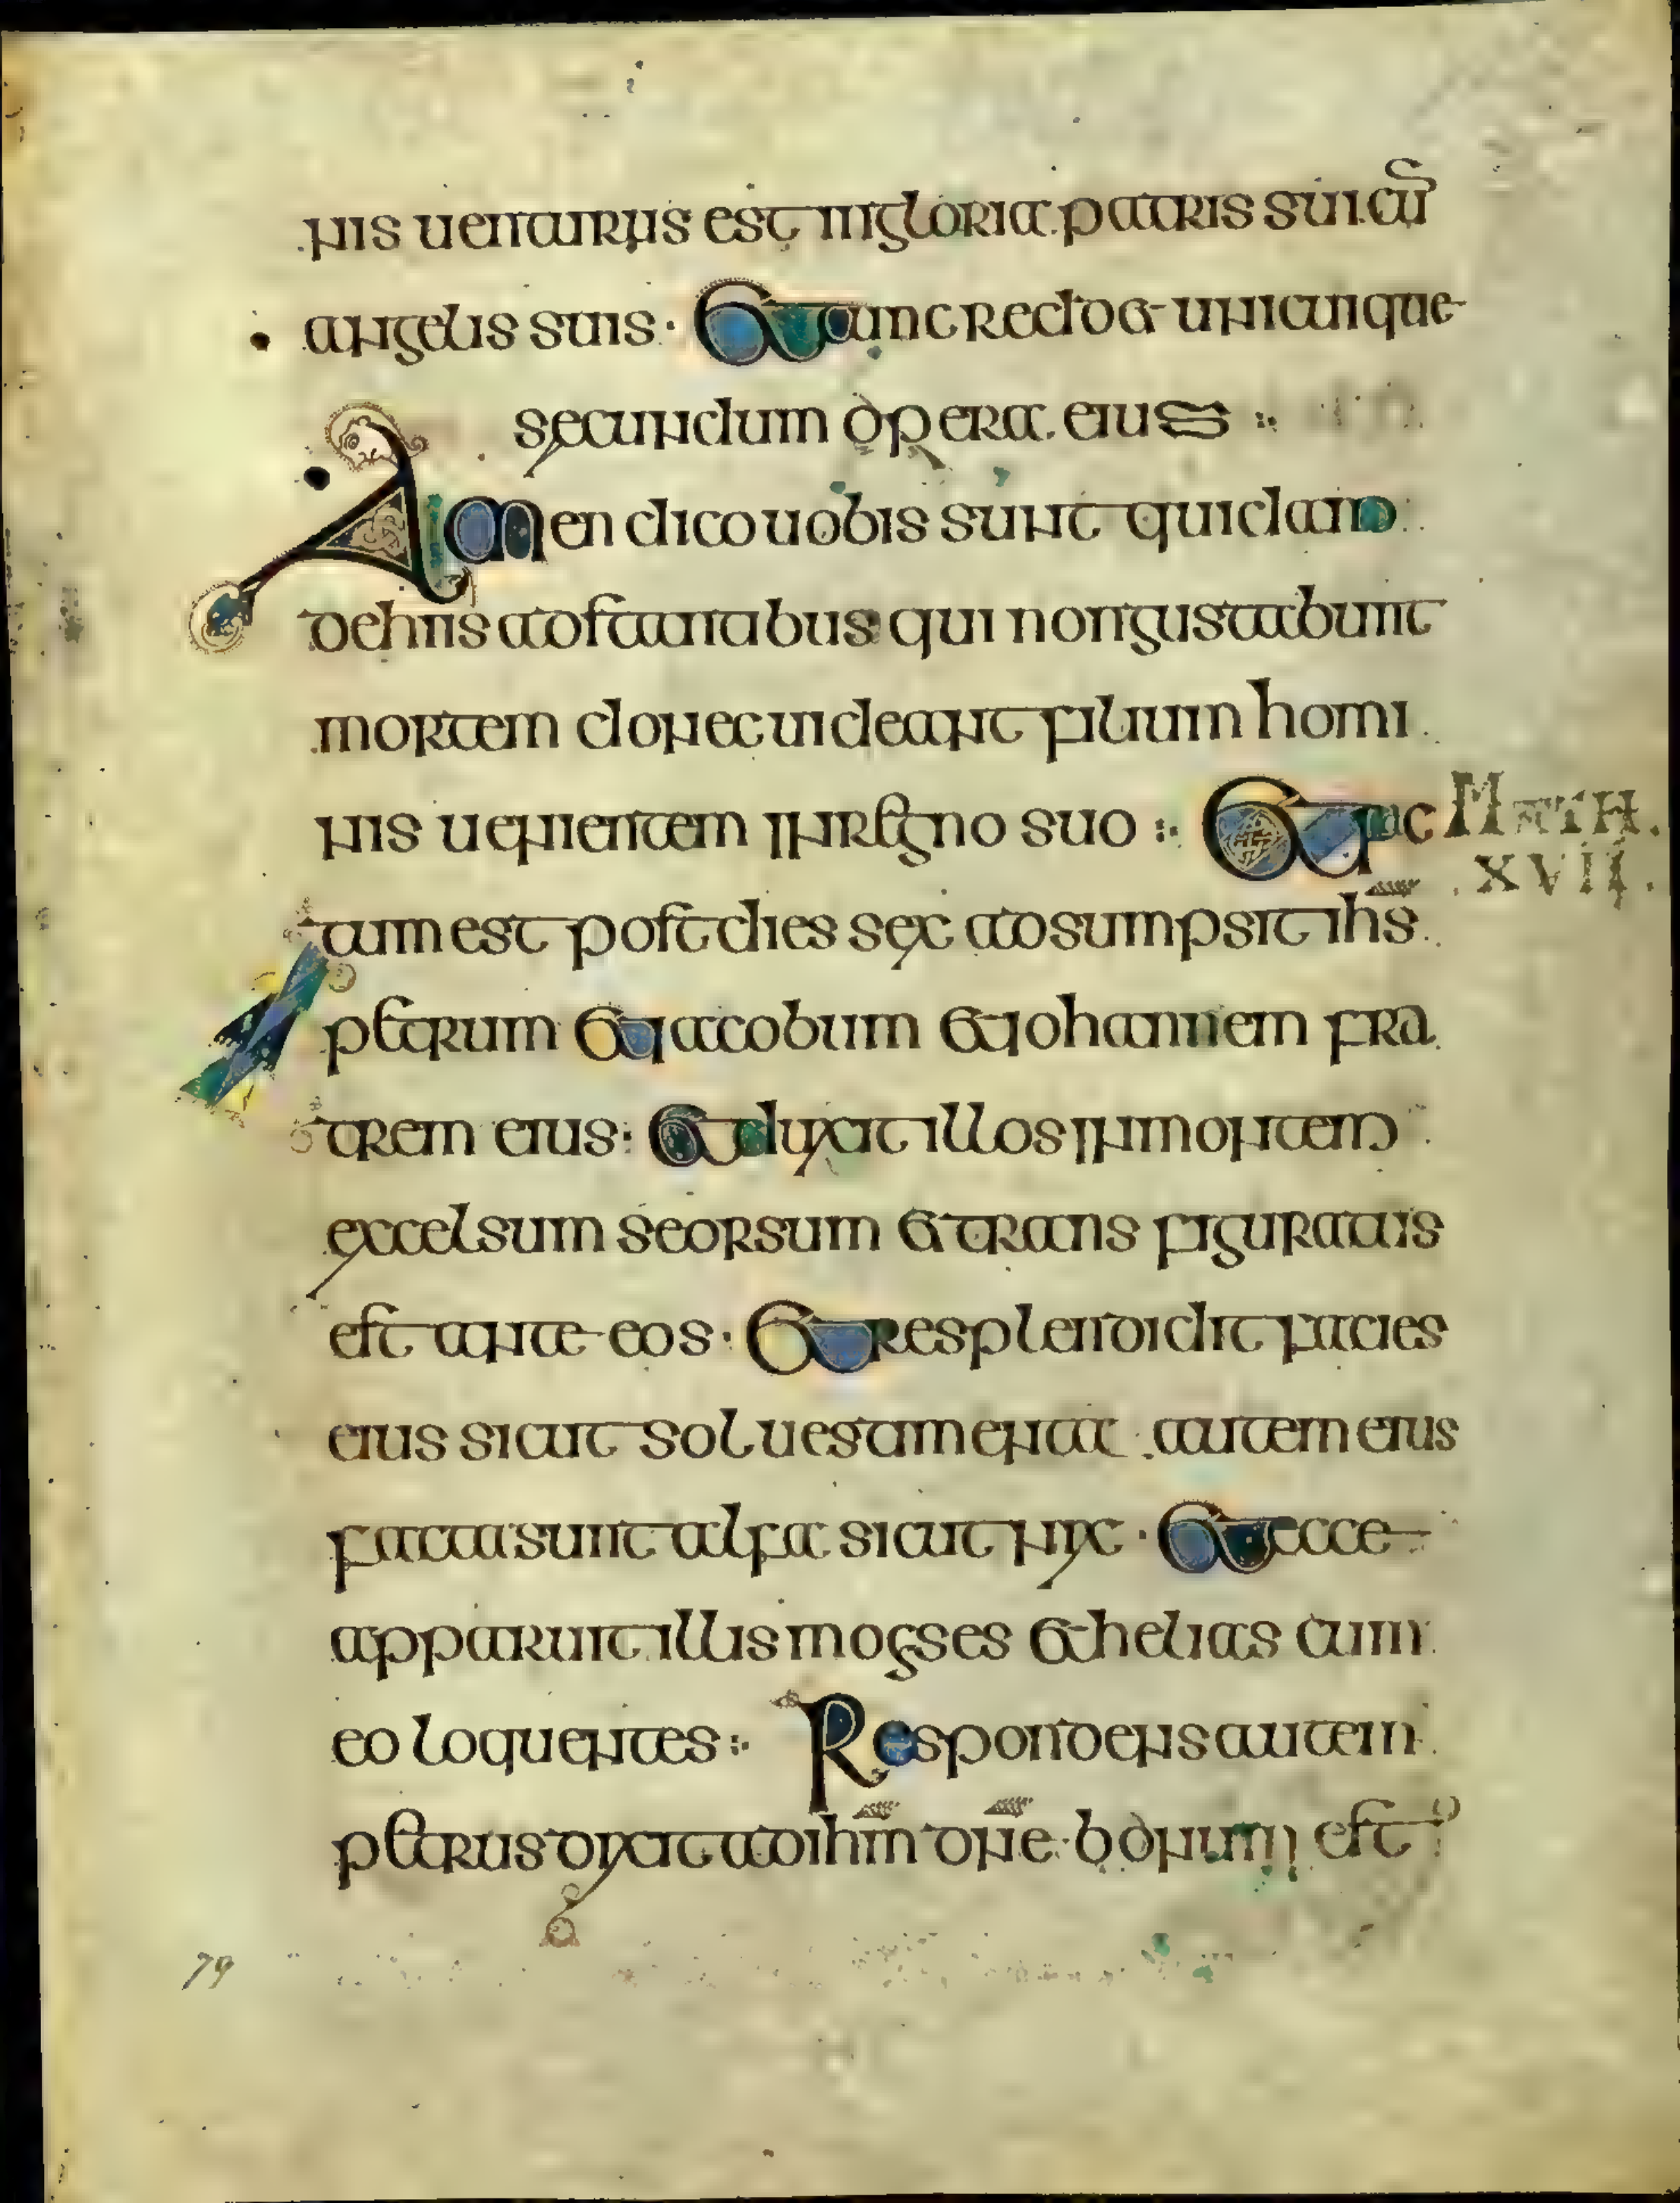 nis uenturus est ingloria patris sui cū
angelis suis · Et tunc reddet unicuique
secundum opera eius :·
Amen dico uobis sunt quidam
dehiis adstantabus qui non gustabunt
mortem donec uideant filium homi
nis uenientem inregno suo :· Et fac
MATH.
XVII.
tum est post dies sex adsumpsit ihs̄
petrum et iacobum et iohannem fra
trem eius : Et duxit illos in montem
excelsum seorsum et trans figuratus
est ante eos · Et resplendidit facies
eius sicut sol uestimenta autem eius
facta sunt alba sicut nix · Et ecce
apparuit illis moyses et helias cum
eo loquentes :· Respondens autem
petrus dixit ad ihm̄ dn̄e · bonum est
79